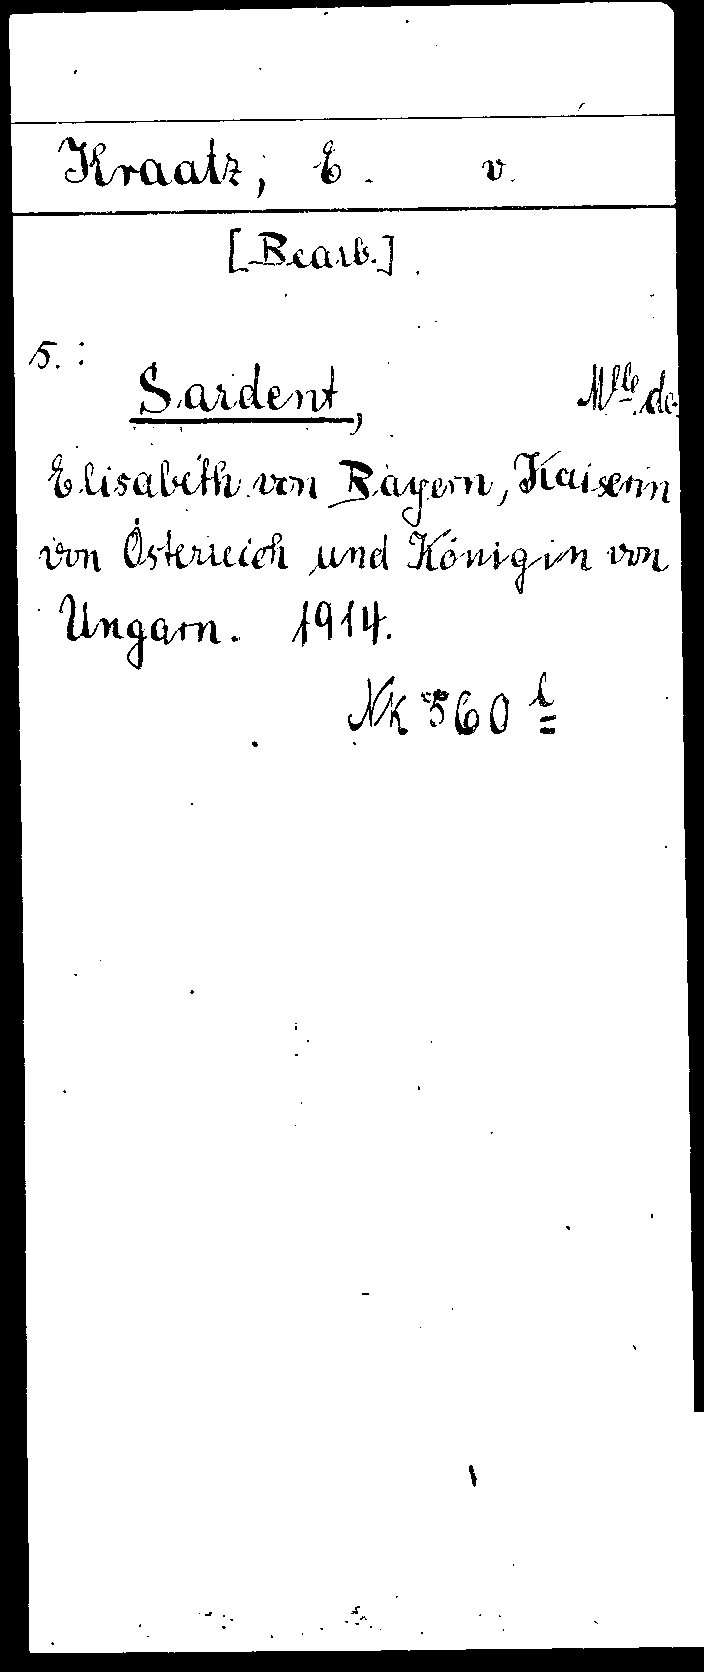 Kraatz, E. v.
[Bearb.]
s.:
Sardent, Mlle de
Elisabeth von Bayern, Kaiserin
von Österreich und Königin von
Ungarn. 1914.
NK 560